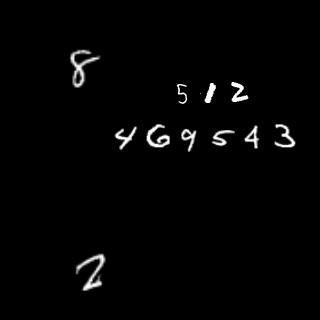 8
512
469543
2